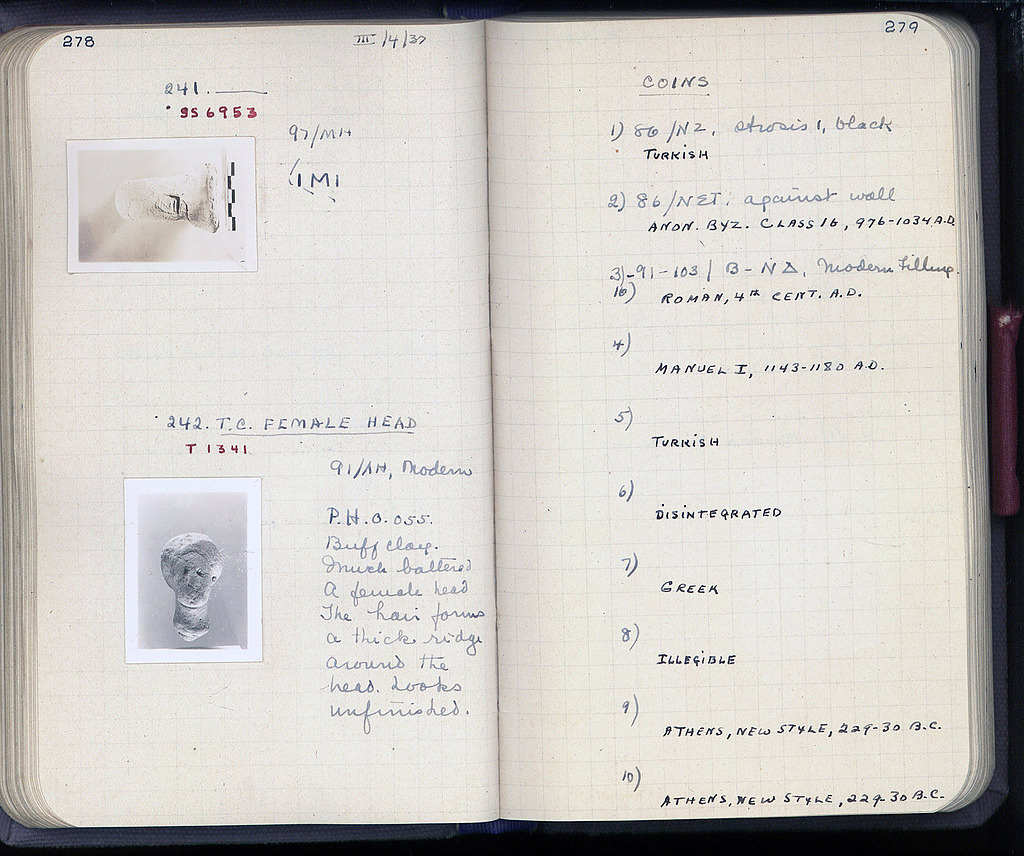 278
III/4/37
241.
SS 6953
97/MH
IMI
242. T.C. FEMALE HEAD
T 1341
91/ΛH, Modern
P.H. 0.055.
Buff clay.
Much battered
A female head
The hair forms
a thick ridge
around the
head. Looks
unfinished.
279
COINS
1) 86/NZ, strosis 1, black
TURKISH
2) 86/NΣT, against wall
ANON. BYZ. CLASS 16, 976-1034 A.D.
3)-91-103/B-NΔ, Modern Filling.
10)
ROMAN, 4TH CENT. A.D.
4)
MANUEL I, 1143-1180 A.D.
5)
TURKISH
6)
DISINTEGRATED
7)
GREEK
8)
ILLEGIBLE
9)
ATHENS, NEW STYLE, 229-30 B.C.
10)
ATHENS, NEW STYLE, 229-30 B.C.